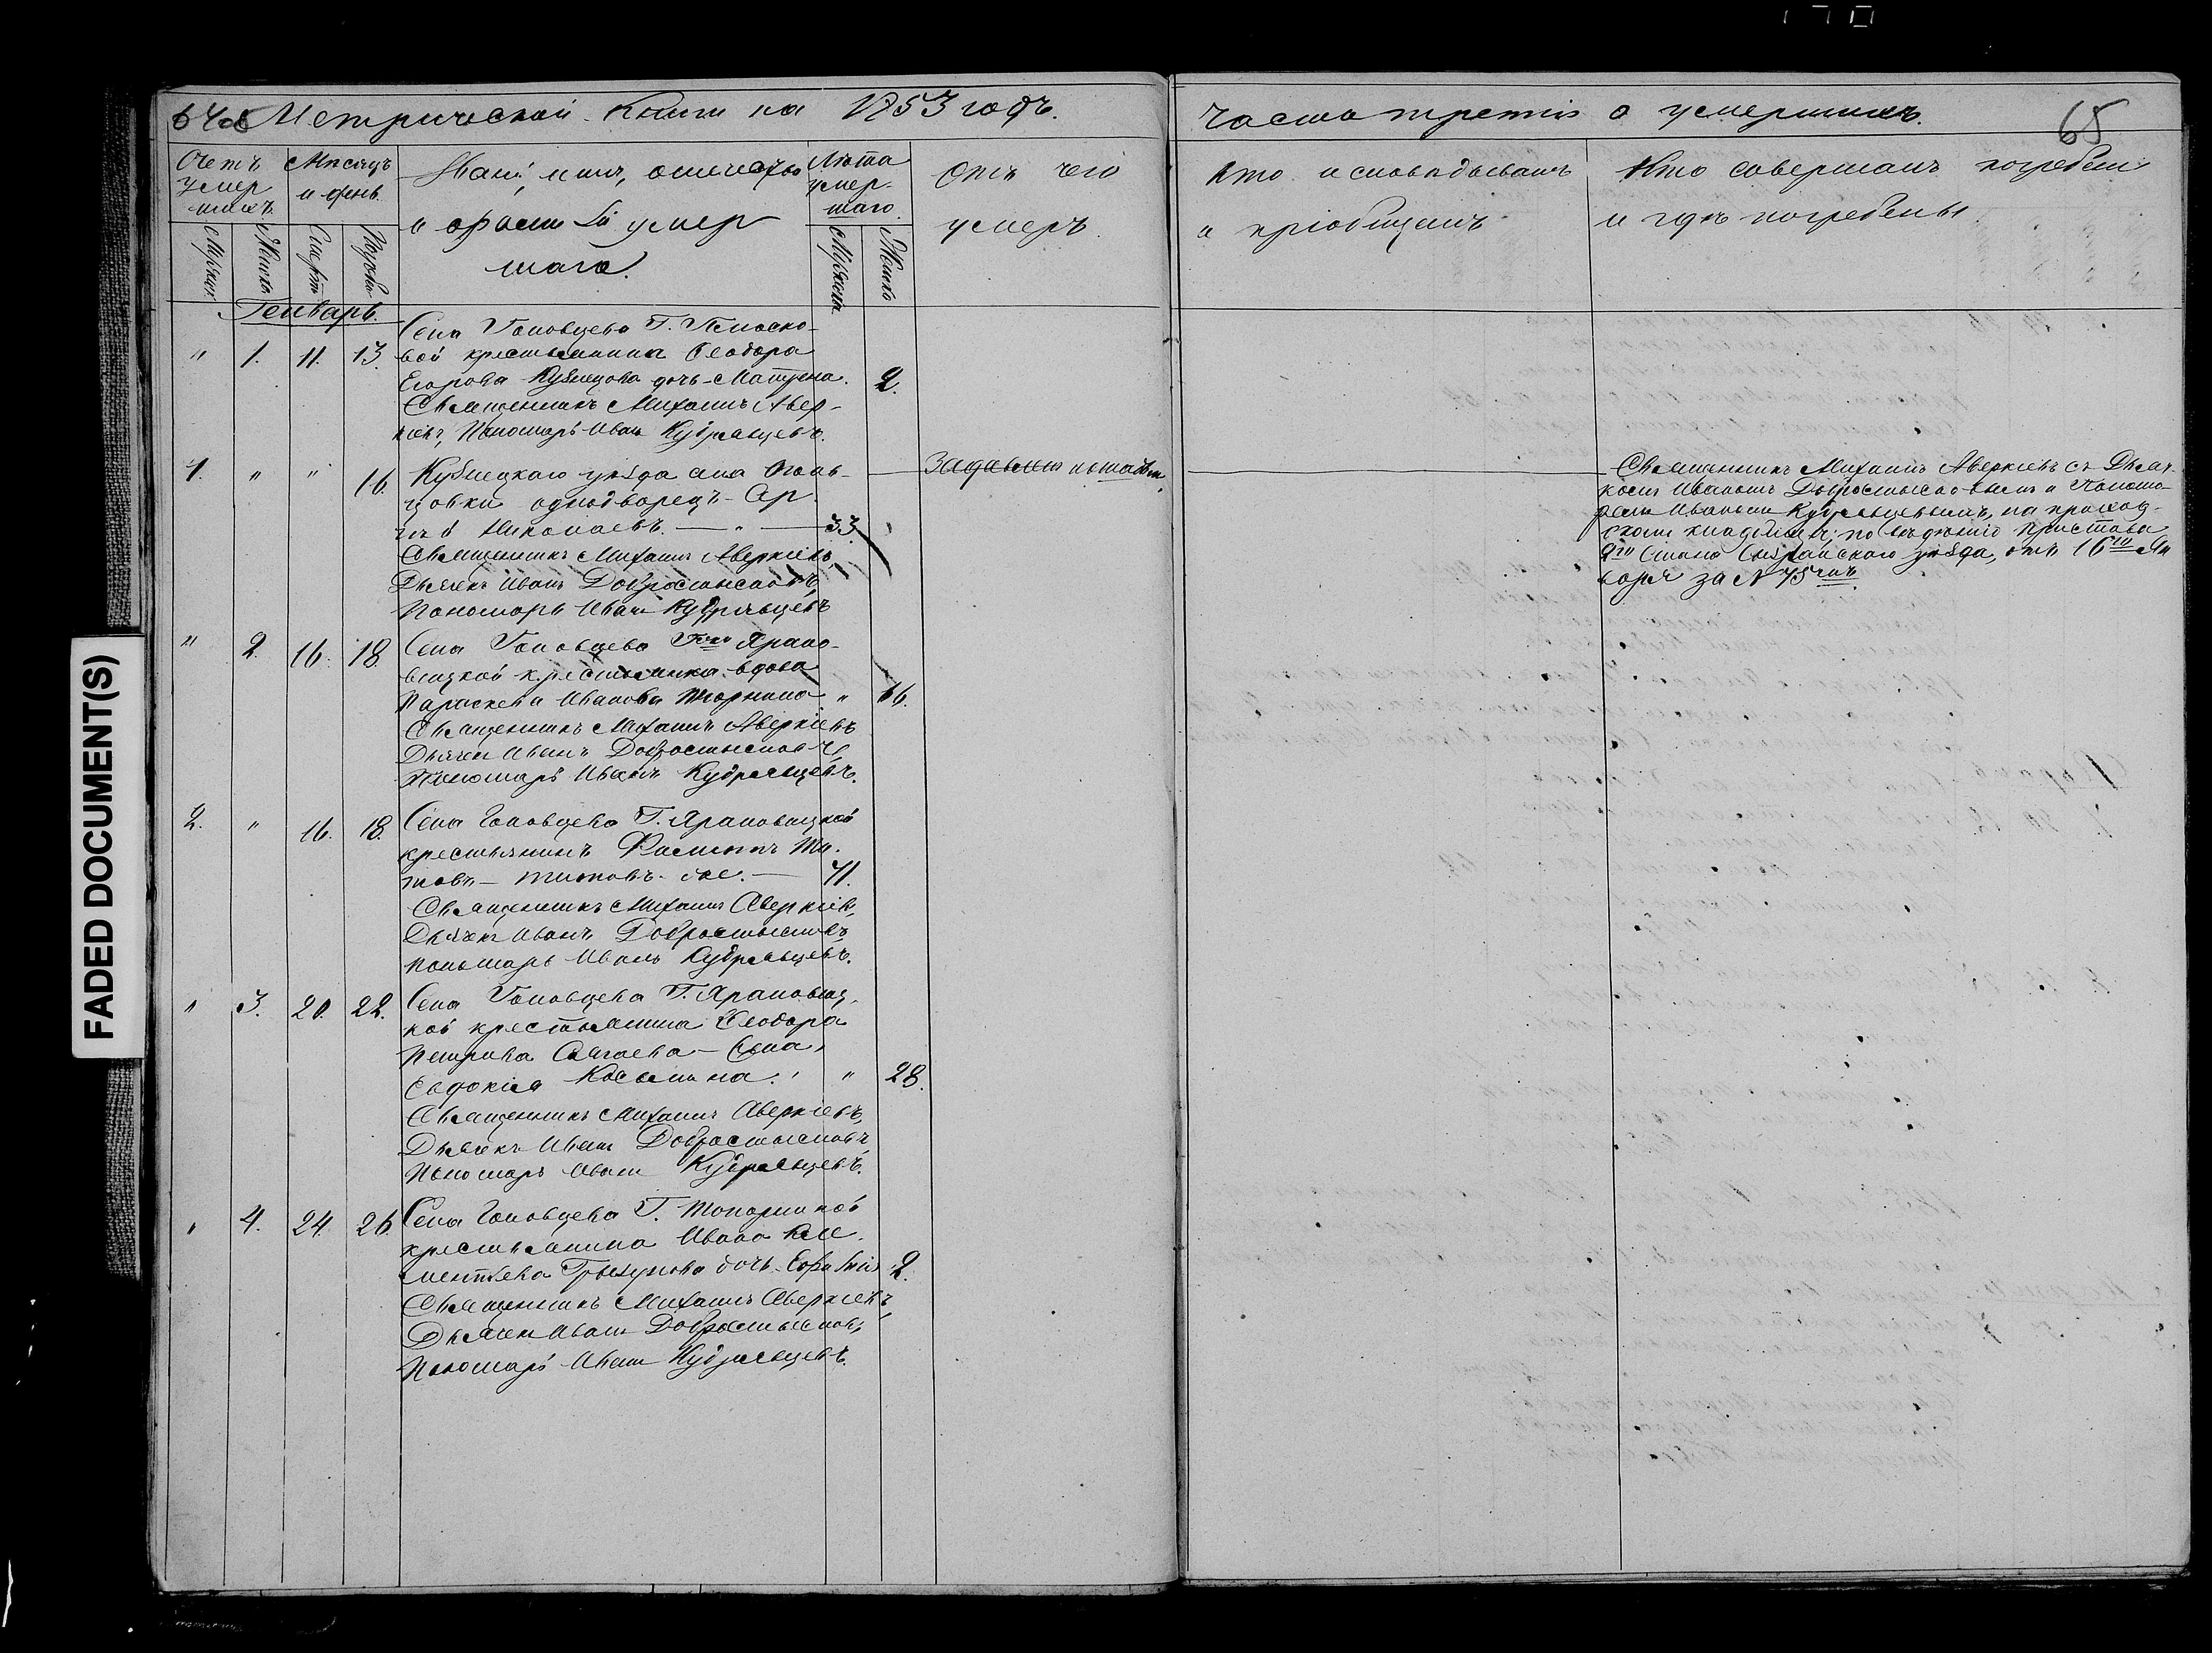 Метрической Книги на 1853 годъ.
часть третія о умершихъ.
65
Счетъ умер шихъ.
Мѣсяцъ и день.
Званіе, имя, отечество
и фамилія умер
шаго.
Лѣта умер- шаго.
Отъ чего
умеръ.
Кто исповѣдывалъ
и пріобщалъ
Кто совершалъ погребеніе
и гдѣ погребены
Генварь.
" 1. 11. 13.
Села Головцева Г.
вой крестьянина Ѳеодора
Егорова Кузнецова дочь Матрена. 2.
Священникъ Михаилъ Авер-
кіевъ, Пономарь Иванъ Кудрявцевъ.
1. " " 16.
Кузнецкаго уѣзда села
однодворецъ
Николаевъ. — " — 33
Священникъ Михаилъ Аверкіевъ,
Дьячекъ Иванъ Добросмысловъ,
Пономарь Иванъ Кудрявцевъ
Задавленъ лошадью.
Священникъ Михаилъ Аверкіевъ съ Дьяч-
комъ Иваномъ Добросмысловымъ и Понома-
ремъ Иваномъ Кудрявцевымъ, на приход-
скомъ кладбищѣ; по вѣдѣнію пристава
2го Стана Сызранскаго уѣзда, отъ 16го Ян
варя за № 75мъ.
" 2. 16. 18
Села Головцева Гжи Ярано-
вицкой крестьянка вдова
Параскева Иванова " 66.
Священникъ Михаилъ Аверкіевъ
Дьячекъ Иванъ Добросмысловъ,
Пономарь Иванъ Кудрявцевъ.
2. " 16. 18.
Села Головцева Г. Ярановицкой
крестьянинъ Филиппъ Ти-
товъ — Титовъ же. — 71.
Священникъ Михаилъ Аверкіевъ,
Дьячекъ Иванъ Добросмысловъ,
Пономарь Иванъ Кудрявцевъ.
" 3. 20. 22.
Села Головцева Г. Ярановиц-
кой крестьянина Ѳеодора
Петрова
Евдокія Косьмина. " 28.
Священникъ Михаилъ Аверкіевъ,
Дьячекъ Иванъ Добросмысловъ,
Пономарь Иванъ Кудрявцевъ.
" 4. 24. 26.
Села Головцева Г. Топорниной
крестьянина Ивана Кле-
ментьева дочь Евфимія 2.
Священникъ Михаилъ Аверкіевъ,
Дьячекъ Иванъ Добросмысловъ,
Пономарь Иванъ Кудрявцевъ.
FADED DOCUMENT(S)